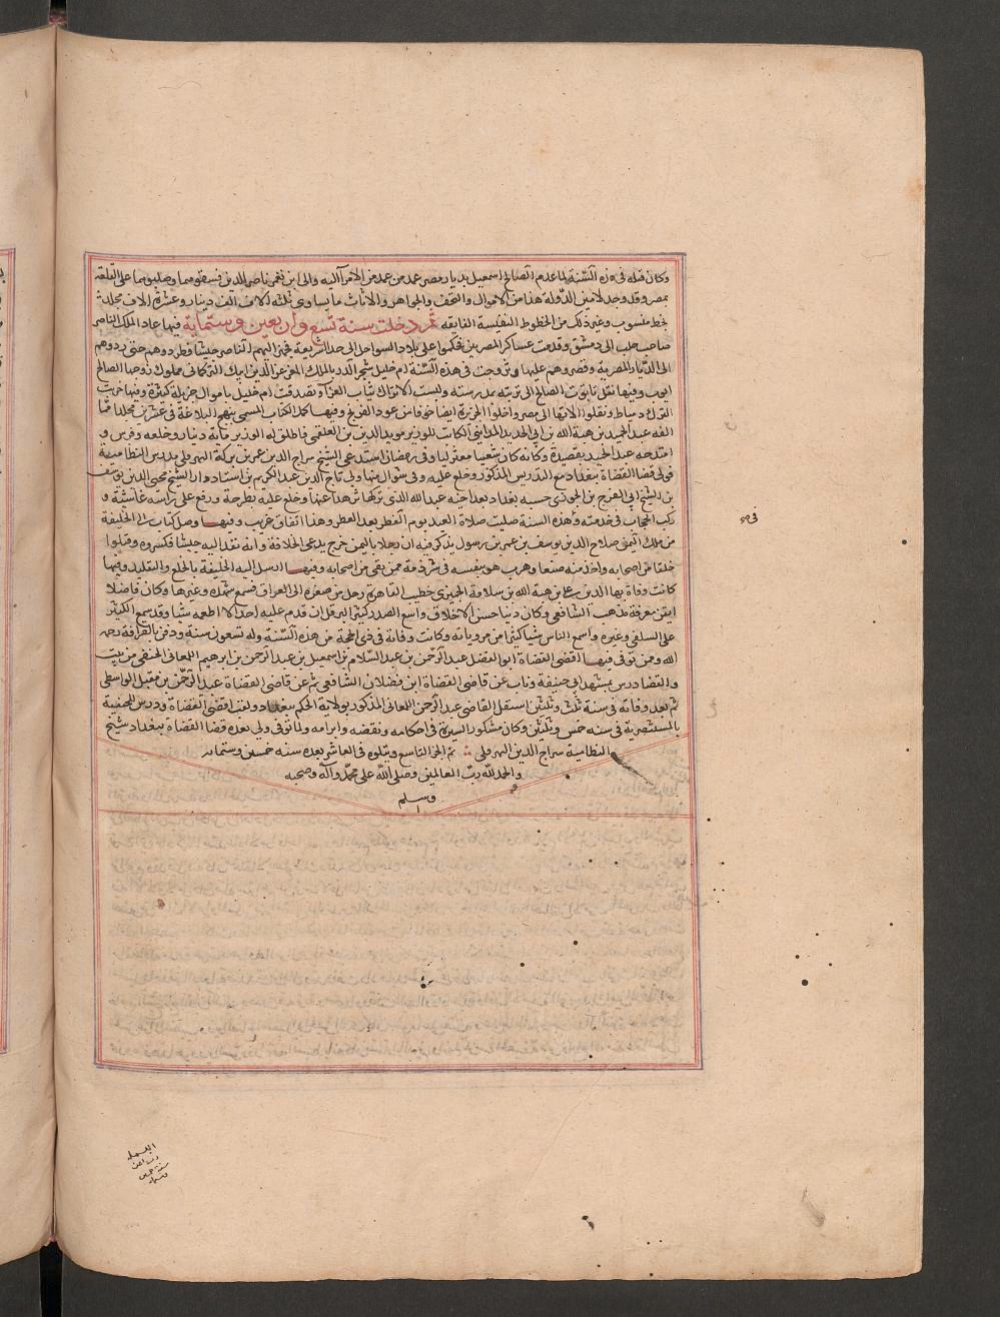 وكان قتله في هذه السنة لما عدم الصالح اسمعيل بديار مصر عمد من عمد من الامرآ اليه والى ابن يغمر ناصر الدين فسقوهما وصلبوهما على القلعة
بمصر وقد وجد لامين الدولة هذا من الاموال والتحف والجواهر والاثاث ما يساوى ثلثه آلاف الف دينار وعشرة آلاف مجلد
بخط منسوب وغير ذلك من الخطوط النفيسة الفايقه ثم دخلت سنة تسع واربعين وستماية فيها عاد الملك الناصر
صاحب حلب الى دمشق وقدمت عساكر المصريين فحكموا على بلاد السواحل الى حد الشريعة فجهز اليهم الناصر جيشا فطردوهم حتى ردوهم
الى الديار المصرية وقصروهم عليها وتزوجت في هذه السنة ام خليل شجر الدر بالملك المعز عز الدين ايبك التركمانى مملوك زوجها الصالح
ايوب وفيها نقل تابوت الصالح الى تربته بمدرسته ولبست الاتراك ثياب العزآ وتصدقت ام خليل باموال جزيلة كثيرة وفيها خربت
الترك دمياط ونقلوا الالات الى مصر واخلوا الجزيرة ايضا خوفا من عود الفرنج وفيها كمل الكتاب المسمى بنهج البلاغة في عشرين مجلدا مما
الفه عبد الحميد بن هبة الله بن ابي الحديد المداينى الكاتب للوزير مويد الدين بن العلقمى فاطلق له الوزير ماية دينار وخلعه وفرس و
امتدحه عبد الحميد بقصيدة وكانه كان شيعيا معتزليا وفي رمضان استدعى الشيخ سراج الدين عمر بن بركة النهرقلى مدرس النظامية
فولى قضا القضاة ببغداد مع التدريس المذكور وخلع عليه وفي شوال منها ولى تاج الدين عبد الكريم بن استاد دار الشيخ محيى الدين يوسف
بن الشيخ ابى الفرج بن الجوزى حسبه بغداد بعد اخيه عبد الله الذى تركها تزهدا عنها وخلع عليه بطرحة ورفع على راسه غاشية و
ركب الحجاب في خدمته وهذه السنة صليت صلاة العيد يوم الفطر بعد العصر وهذا اتفاق غريب وفيها وصل كتاب الى الخليفة
من ملك اليمن صلاح الدين يوسف بن عمر بن رسول يذكر فيه ان رجلا باليمن خرج يدعى الخلافة وانه نفذ اليه جيشا فكسروه وقتلوا
خلقا من اصحابه واخذ منه صنعا وهرب هو بنفسه في شرذمة ممن بقى من اصحابه وفيها ارسل اليه الخليفة بالخلع والتقليد وفيها
كانت وفاة بها الدين على بن هبة الله بن سلامة الجميزى خطيب القاهرة رحل من صغره الى العراق فسمع بها وغيرها وكان فاضلا
اتقن معرفة مذهب الشافعي وكان دينا حسن الاخلاق واسع الصدر كثير البر قل ان قدم عليه احد الا اطعمه شيا وقد سمع الكثير
على السلفى وغيره واسمع الناس شيا كثيرا من مروياته وكانت وفاته في ذى الحجة من هذه السنة وله تسعون سنة ودفن بالقرافة رحمه
الله وممن توفى فيها اقضى القضاة ابو الفضل عبد الرحمن بن عبد السلام بن اسمعيل بن عبد الرحمن بن ابرهيم اللمعانى الحنفى من بيت
والقضا درس بمشهد ابى حنيفة وناب عن قاضى القضاة ابن فضلان الشافعى ثم عن قاضى القضاة عبد الرحمن بن مقبل الواسطى
ثم بعد وفاته في سنة ثلث وثلثين استقل القاضى عبد الرحمن اللمعانى المذكور بولاية الحكم ببغداد ولقب اقضى القضاة ودرس للحنفية
بالمستنصرية في سنه خمس وثلثين وكان مشكور السيرة في احكامه ونقضه وابرامه ولما توفى ولى بعده قضا القضاة ببغداد شيخ
النظامية سراج الدين النهرقلى تم الجز التاسع ويتلوه في العاشر بعده سنه خمسين وستمايه
والحمد لله رب العالمين وصلى الله على محمد وآله وصحبه
وسلم